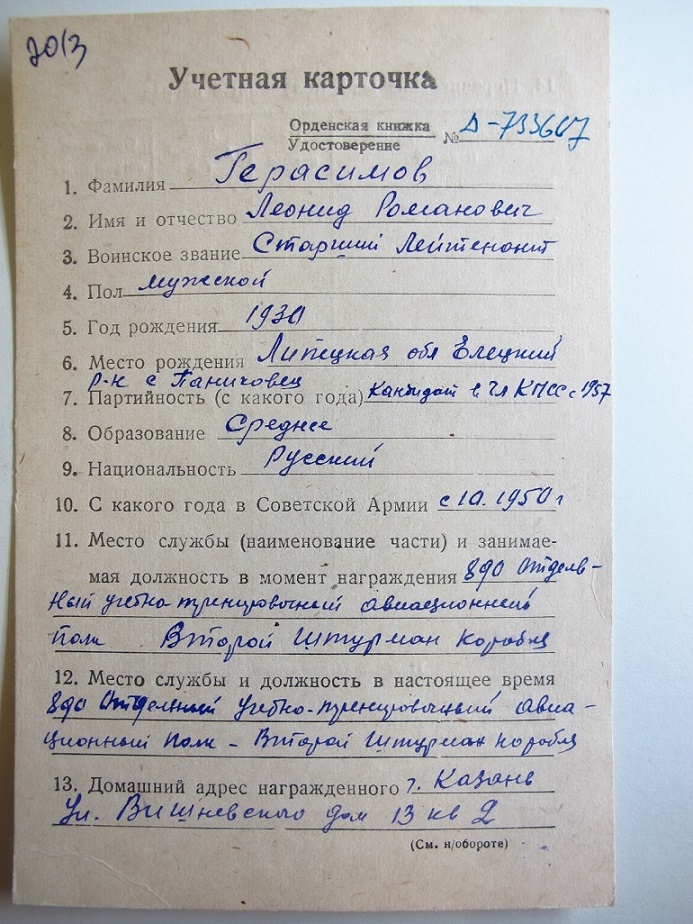 2013
Учетная карточка
Орденская книжка
Удостоверение № Д-733607
1. Фамилия Герасимов
2. Имя и отчество Леонид Романович
3. Воинское звание Старший Лейтенант
4. Пол мужской
5. Год рождения 1930
6. Место рождения Липецкая обл Елецкий
р-н с Паниковец
7. Партийность (с какого года) Кандидат в чл КПСС с 1957
8. Образование Среднее
9. Национальность Русский
10. С какого года в Советской Армии с 10.1950 г
11. Место службы (наименование части) и занимае-
мая должность в момент награждения 890 Отдель-
ный учебно тренировочный авиационный
полк Второй Штурман корабля
12. Место службы и должность в настоящее время
890 Отдельный Учебно-тренировочный авиа-
ционный полк - Второй Штурман корабля
13. Домашний адрес награжденного г. Казань
Ул. Вишневского дом 13 кв 2
(См. н/обороте)